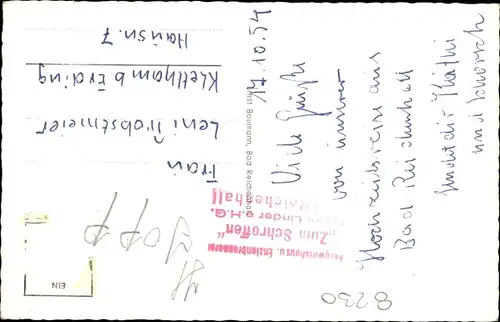 17.10.54
Viele Grüße
von unserer
Hochzeitsreise aus
Bad Reichenhall
sendet dir Kathi
und Schorsch
Ernst Baumann, Bad Reichenhall
Frau
Leni Probstmeier
Klettham b Erding
Hausn. 7
Bergwirtshaus u. Enzianbrennerei
„Zum Schroffen"
Linder o.H.G.
Reichenhall
EIN
8230